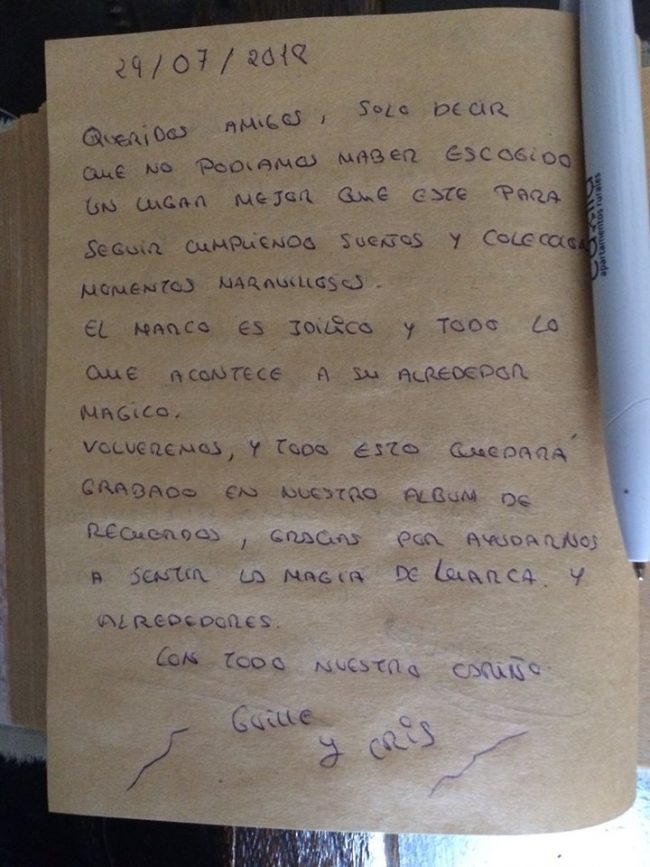 29/07/2018
QUERIDOS AMIGOS, SOLO DECIR
QUE NO PODIAMOS HABER ESCOGIDO
UN LUGAR MEJOR QUE ESTE PARA
SEGUIR CUMPLIENDO SUEÑOS Y COLECCIONAR
MOMENTOS MARAVILLOSOS.
EL MARCO ES IDILICO Y TODO LO
QUE ACONTECE A SU ALREDEDOR
MAGICO.
VOLVEREMOS, Y TODO ESTO QUEDARÁ
GRABADO EN NUESTRO ALBUM DE
RECUERDOS, GRACIAS POR AYUDARNOS
A SENTIR LA MAGIA DE LUARCA. Y
ALREDEDORES.
CON TODO NUESTRO CARIÑO.
GUILLE
Y CRIS
apartamentos rurales